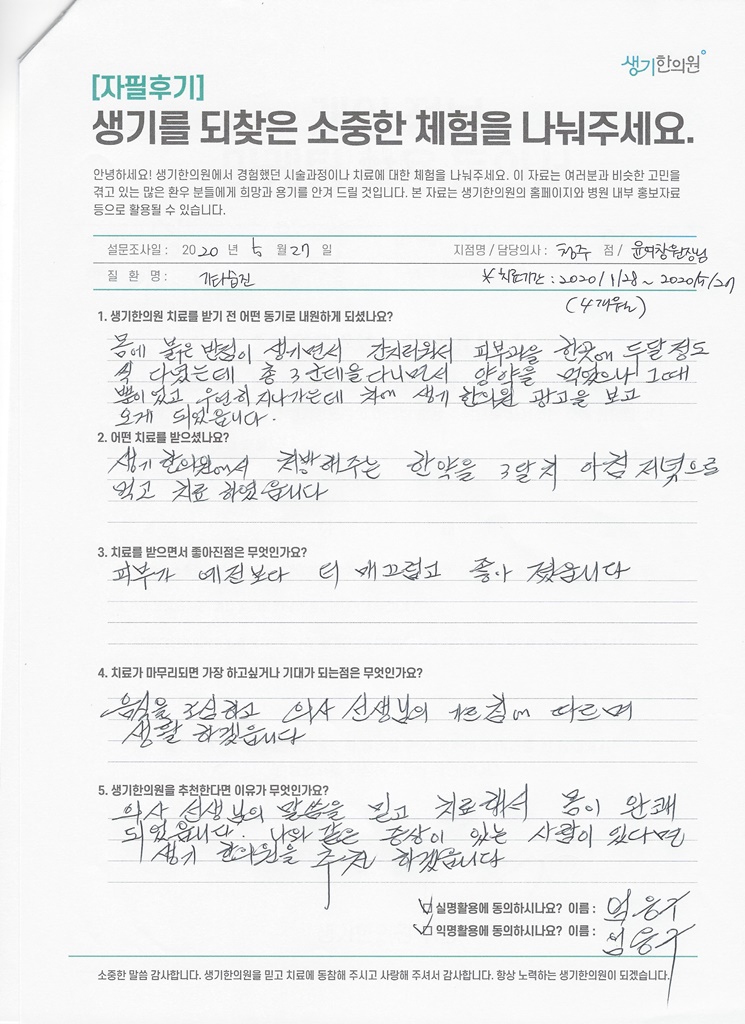 생기한의원
[자필후기]
생기를 되찾은 소중한 체험을 나눠주세요.
안녕하세요! 생기한의원에서 경험했던 시술과정이나 치료에 대한 체험을 나눠주세요. 이 자료는 여러분과 비슷한 고민을
겪고 있는 많은 환우 분들에게 희망과 용기를 안겨 드릴 것입니다. 본 자료는 생기한의원의 홈페이지와 병원 내부 홍보자료
등으로 활용될 수 있습니다.
설문조사일 : 2020 년 5 월 27 일 지점명 / 담당의사 : 청주 점 / 윤여창원장님
질 환 명 : 기타습진 * 치료기간 : 2020/1/28 ~ 2020/5/27
(4개월)
1. 생기한의원 치료를 받기 전 어떤 동기로 내원하게 되셨나요?
몸에 붉은 반점이 생기면서 간지러워서 피부과을 한곳에 두달정도
씩 다녔는데 총 3군데을 다니면서 양약을 먹었으나 그때
뿐이었고 우연히 지나가는데 차에 생기 한의원 광고을 보고
오게 되었읍니다.
2. 어떤 치료를 받으셨나요?
생기한의원에서 처방해주는 한약을 3달치 아침 저녁으로
먹고 치료 하였읍니다
3. 치료를 받으면서 좋아진점은 무엇인가요?
피부가 예전보다 더 매끄럽고 좋아 졌읍니다
4. 치료가 마무리되면 가장 하고싶거나 기대가 되는점은 무엇인가요?
음식을 조심하고 의사 선생님의 가르침에 따르며
생활 하겠읍니다
5. 생기한의원을 추천한다면 이유가 무엇인가요?
의사 선생님의 말씀을 믿고 치료해서 몸이 완쾌
되었읍니다. 나와 같은 증상이 있는 사람이 있다면
생기 한의원을 추천 하겠읍니다
실명활용에 동의하시나요? 이름 :
익명활용에 동의하시나요? 이름 :
소중한 말씀 감사합니다. 생기한의원을 믿고 치료에 동참해 주시고 사랑해 주셔서 감사합니다. 항상 노력하는 생기한의원이 되겠습니다.